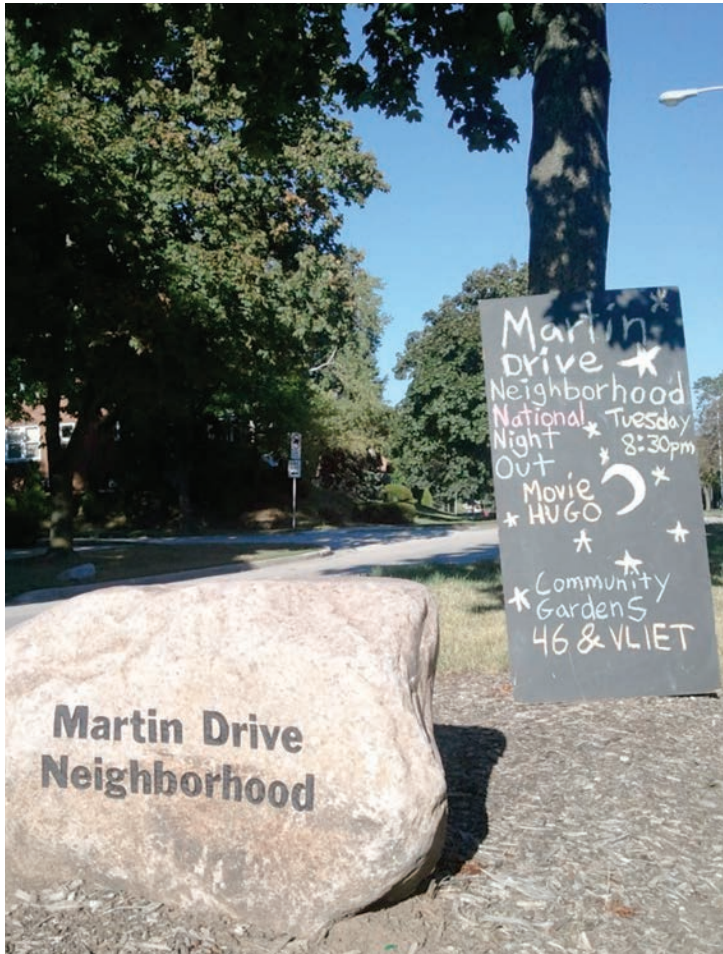 Martin
DRIVE
Neighborhood
National Tuesday
Night 8:30pm
Out
MOVIE
HUGO
Community
GardenS
46 & VLIET
Martin Drive
Neighborhood